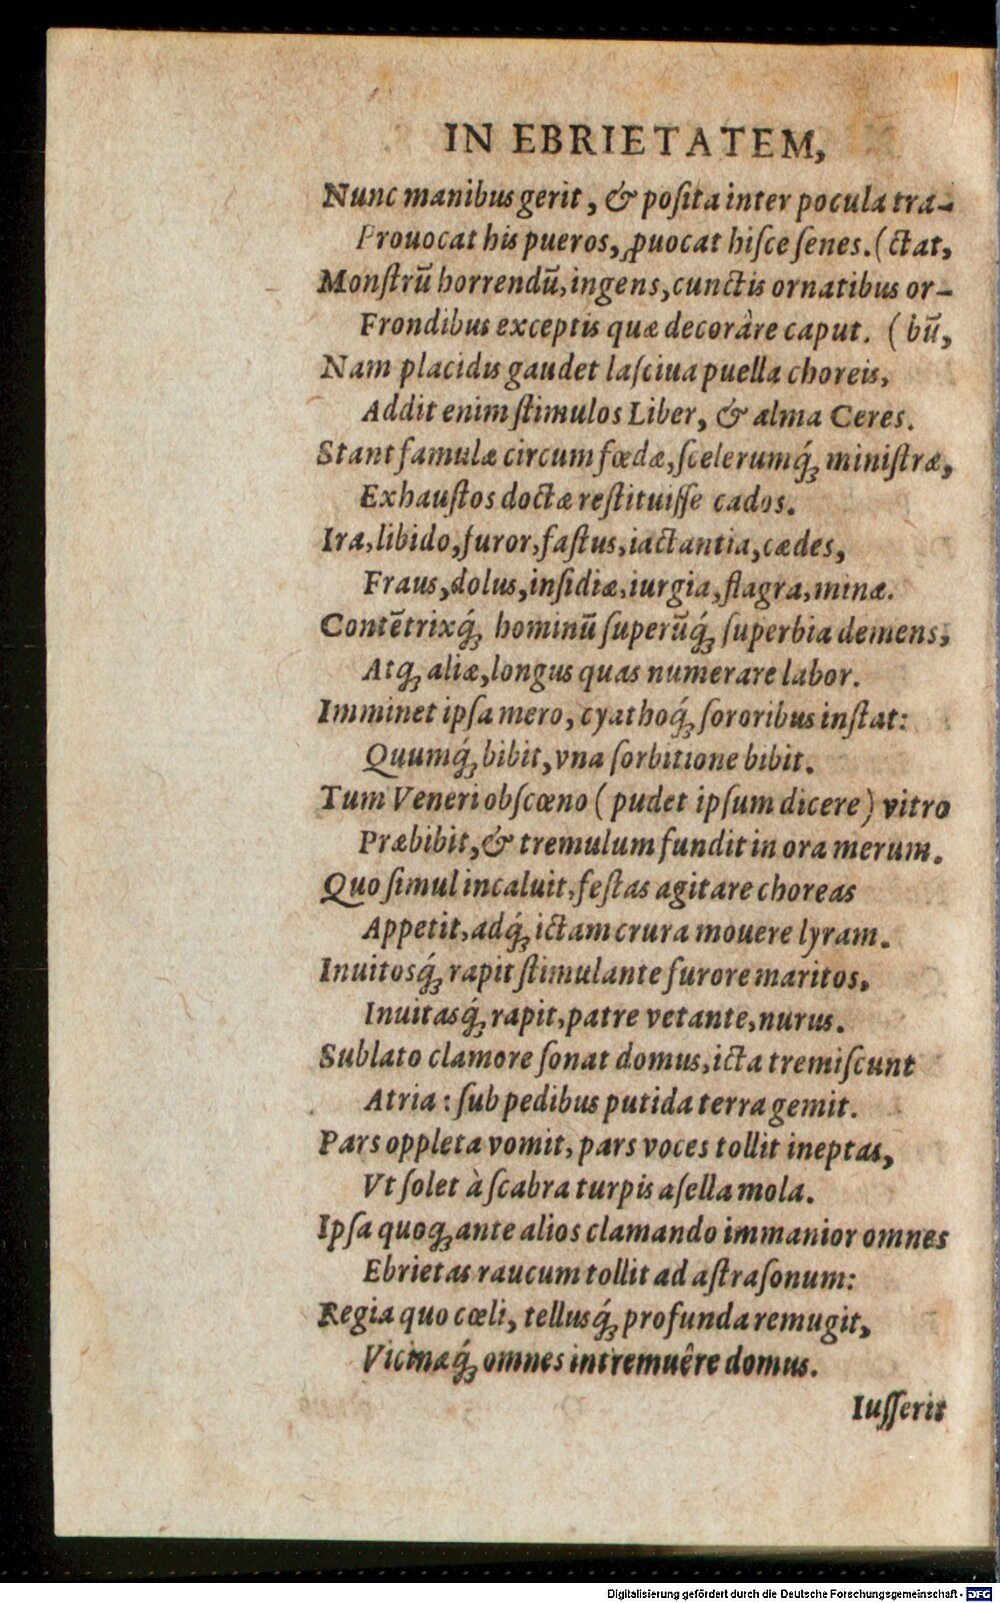 IN EBRIETATEM,
Nunc manibus gerit, & poſita inter pocula tra-
Prouocat his pueros, ꝓuocat hiſce ſenes. (ctat,
Monſtrū horrendū, ingens, cunctis ornatibus or-
Frondibus exceptis quæ decorâre caput. (bū,
Nam placidis gaudet laſciua puella choreis,
Addit enim ſtimulos Liber, & alma Ceres.
Stant famulæ circum fœdæ, ſcelerumq́ꝫ miniſtræ,
Exhauſtos doctæ reſtituiſſe cados.
Ira, libido, furor, faſtus, iactantia, cædes,
Fraus, dolus, inſidiæ, iurgia, flagra, minæ.
Contētrixq́ꝫ hominū ſuperūq́ꝫ ſuperbia demens,
Atqꝫ aliæ, longus quas numerare labor.
Imminet ipſa mero, cyathoq́ꝫ ſororibus inſtat:
Quumq́ꝫ bibit, vna ſorbitione bibit.
Tum Veneri obſcœno (pudet ipſum dicere) vitro
Præbibit, & tremulum fundit in ora merum.
Quo ſimul incaluit, feſtas agitare choreas
Appetit, adq́ꝫ ictam crura mouere lyram.
Inuitosq́ꝫ rapit ſtimulante furore maritos,
Inuitasq́ꝫ rapit, patre vetante, nurus.
Sublato clamore ſonat domus, icta tremiſcunt
Atria: ſub pedibus putida terra gemit.
Pars oppleta vomit, pars voces tollit ineptas,
Vt ſolet à ſcabra turpis aſella mola.
Ipſa quoqꝫ ante alios clamando immanior omnes
Ebrietas raucum tollit ad aſtra ſonum:
Regia quo cœli, tellusq́ꝫ profunda remugit,
Vicinæq́ꝫ omnes intremuêre domus.
Iuſſerit
Digitalisierung gefördert durch die Deutsche Forschungsgemeinschaft - DFG